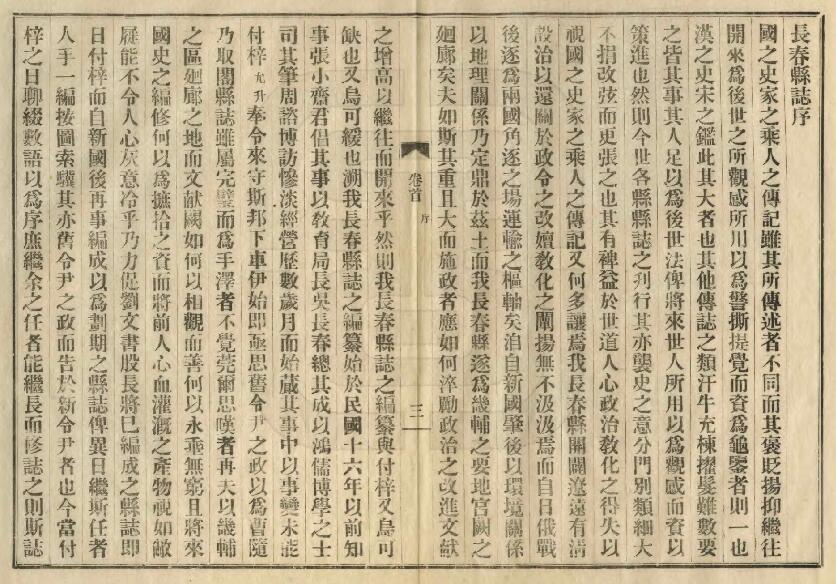 長春縣誌序
國之史家之乘人之傳記雖其所傳述者不同而其褒貶揚抑繼往
開來爲後世之所觀感所用以爲警撕提覺而資爲龜鑒者則一也
漢之史宋之鑑此其大者也其他傳誌之類汗牛充棟擢髮難數要
之皆其事其人足以爲後世法俾將來世人所用以爲觀感而資以
策進也然則今世各縣縣誌之刋行其亦襲史之意分門別類細大
不捐改弦而更張之也其有裨益於世道人心政治敎化之得失以
視國之史家之乘人之傳記又何多讓焉我長春縣開闢遼遠有清
設治以還關於政令之改嬗敎化之闡揚無不汲汲焉而自日俄戰
後逐爲兩國角逐之場運輸之樞軸矣洎自新國肇後以環境關係
以地理關係乃定鼎於茲土而我長春縣遂爲畿輔之要地官闕之
廻廊矣夫如斯其重且大而施政者應如何淬勵政治之改進文獻
卷首
序
三
之增高以繼往而開來乎然則我長春縣誌之編纂與付梓又烏可
缺也又烏可緩也溯我長春縣誌之編纂始於民國十六年以前知
事張小齋君倡其事以敎育局長吳長春總其成以鴻儒博學之士
司其筆周諮博訪慘淡經營歷數歲月而始蕆其事中以事變未能
付梓允升奉令來守斯邦下車伊始即亟思舊令尹之政以爲曹隨
乃取閣縣誌雖屬完璧而爲手澤者不覺莞爾思嘆者再夫以畿輔
之區廻廊之地而文献闕如何以相觀而善何以永垂無窮且將來
國史之編修何以爲摭拾之資而將前人心血灌漑之產物視如敝
屣能不令人心灰意冷乎乃力促劉文書股長將已編成之縣誌即
日付梓而自新國後再事編成以爲劃期之縣誌俾異日繼斯任者
人手一編按圖索驥其亦舊令尹之政而告於新令尹者也今當付
梓之日聊綴數語以爲序庶繼余之任者能繼長而修誌之則斯誌